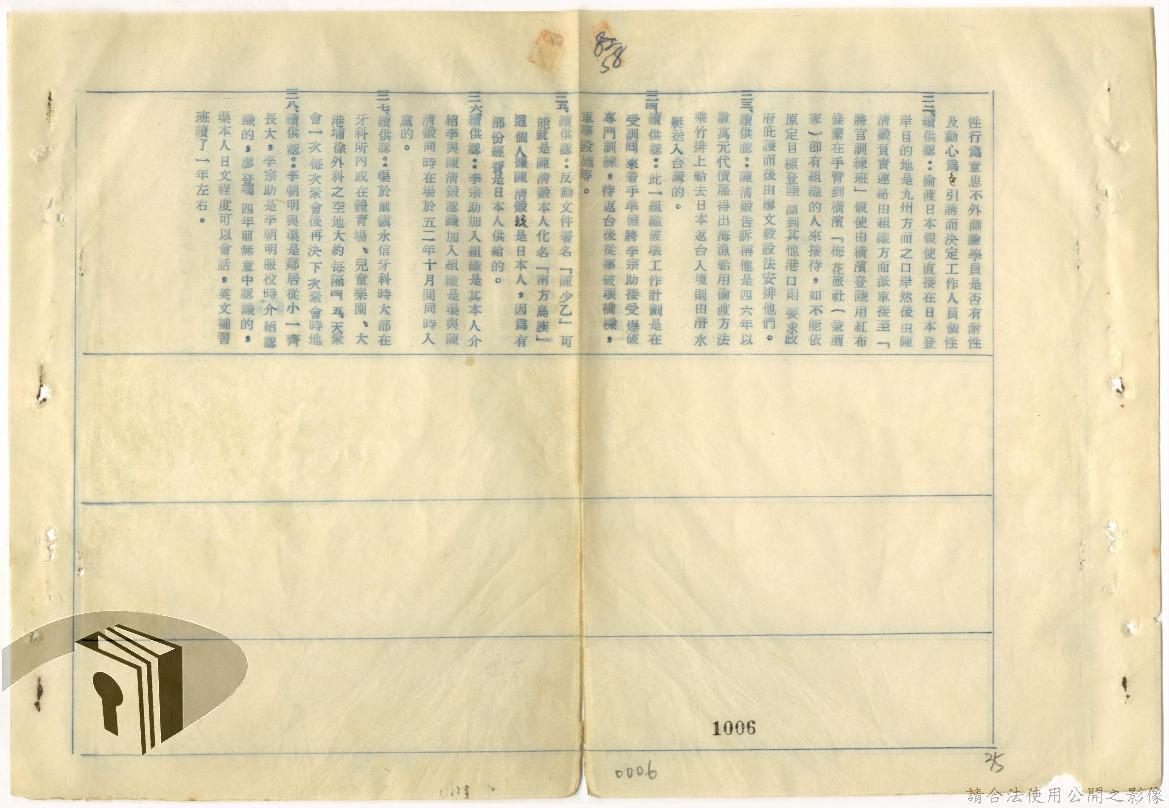 85
58
性行為意思不外測驗學員是否有耐性
及動心為色引誘而決定工作人員個性
三二、續供認：偷渡日本假使直接在日本登
岸目的地是九州方面之口岸然後由陳
清鍛負責連絡由組織方面派車接至「
將官訓練班」假使由橫濱登陸用紅布
條繫在手臂到橫濱「梅花旅社」（兼酒
家）即有組織的人來接待，如不能依
原定目標登陸 漂到其他港口則 要求政
府庇護而後由廖文毅設法安排他們。
三三、續供認：陳清鍛告訴稱他是四六年以
數萬元代價雇得出海漁船用偷渡方法
乘竹排上船去日本返台入境則由潛水
艇送入台灣的。
三四、續供認：此一組織破壞工作計劃是在
受訓回來着手準備將李宗助接受爆破
專門訓練，待返台後從事破壞橋樑，
軍事設施等。
三五、續供認：反動文件署名『陳少乙』可
能就是陳清鍛本人化名『南方島族』
這個人據陳 清鍛說是日本人，因為有
部份經費是日本人供給的。
三六、續供認：李宗助加入組織是其本人介
紹李與陳清鍛認識加入組織是渠與陳
清鍛同時在場於五二年十月間同時入
黨的。
三七、續供認：渠於前鎮永信牙科時大部在
牙科所內或在體育場、兒童樂園、大
港埔徐外科之空地大約每隔四、五天聚
會一次 每次聚會後再決下次聚會時地
三八、續供認：李朝明與渠是鄰居從小一齊
長大，李宗助是李朝明服役時介紹認
識的，廖登 四年前無意中認識的，
渠本人日文程度可以會話，英文補習
班讀了一年左右。
1006
0006
25
請合法使用公開之影像